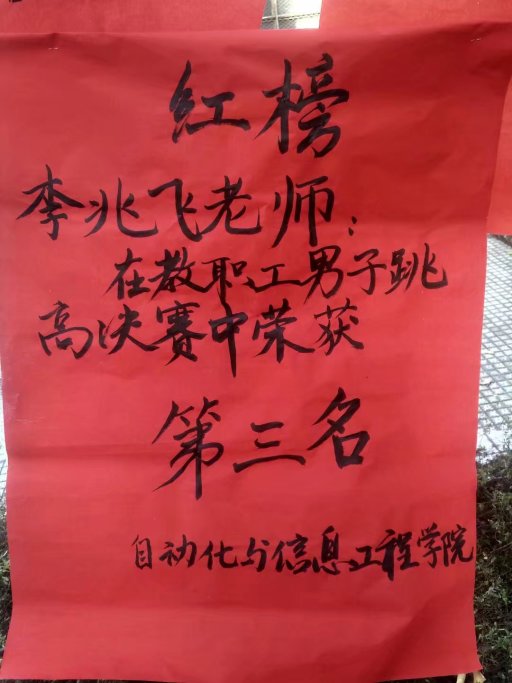 红榜
李兆飞老师：
在教职工男子跳
高决赛中荣获
第三名
自动化与信息工程学院